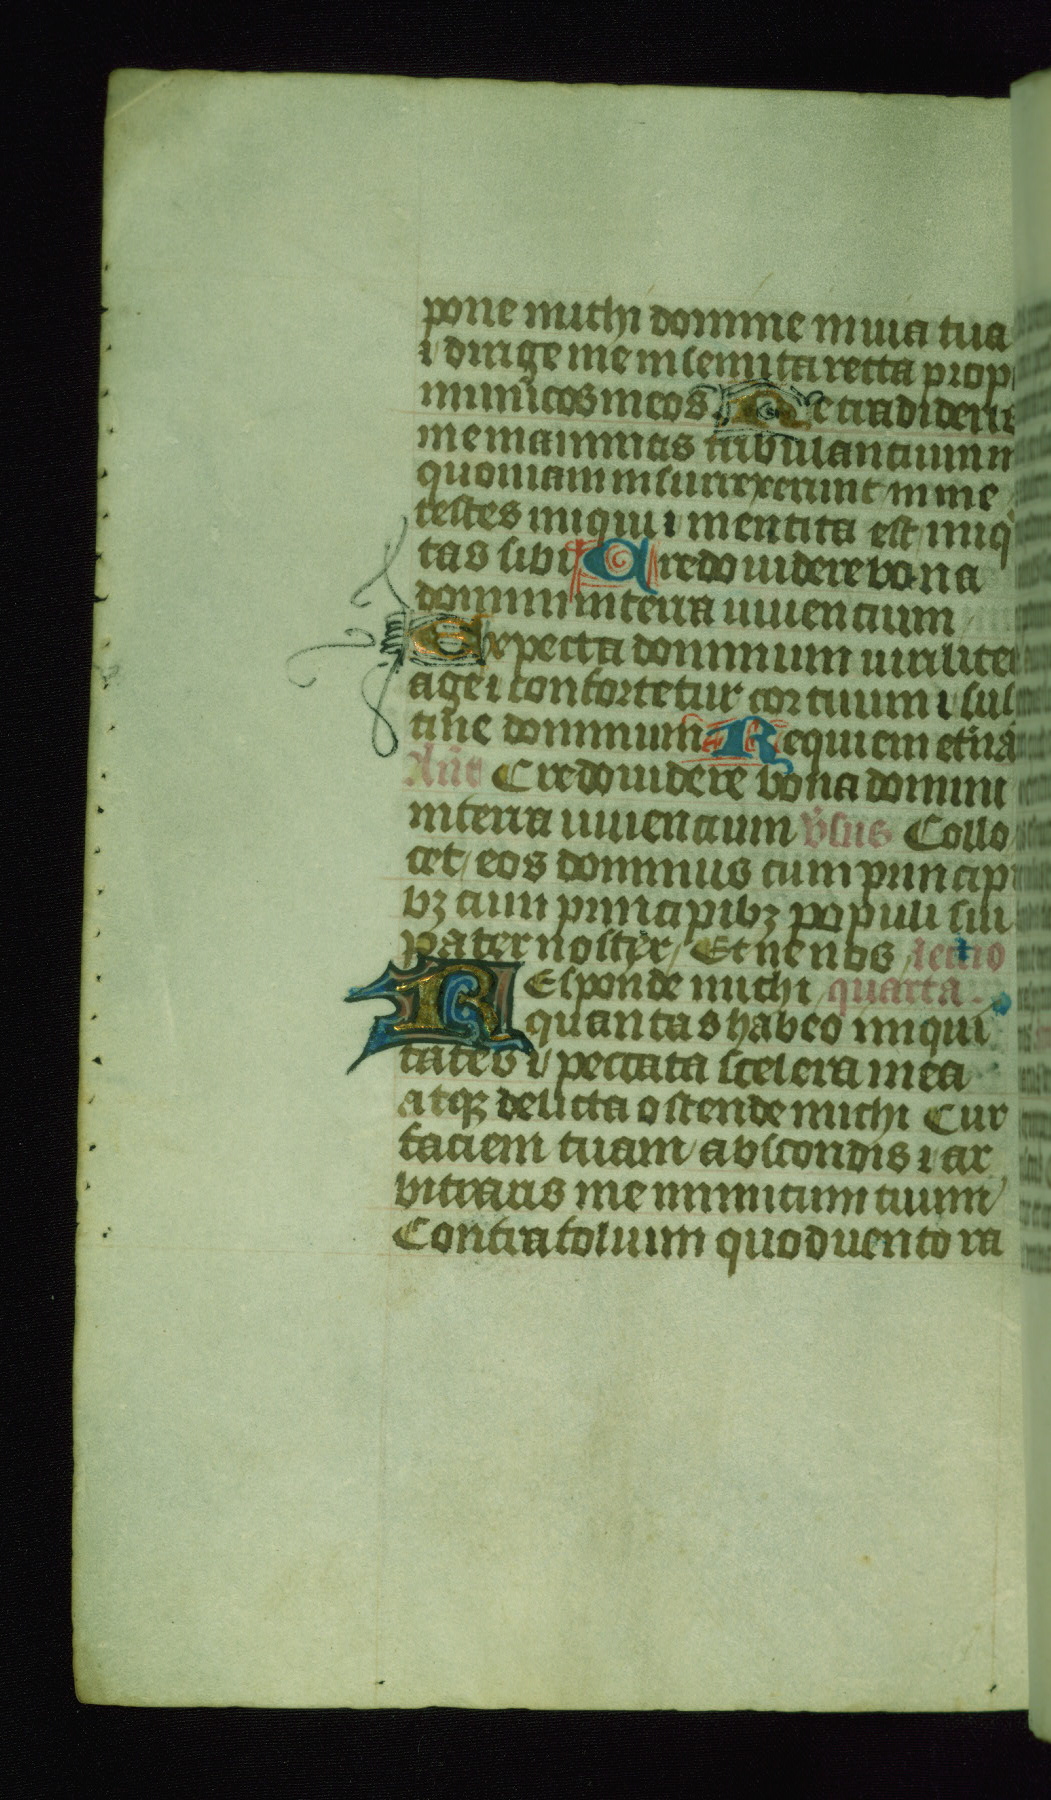 pone michi domine in via tua
⁊ dirige me in semita recta prop
inimicos meos. Ne tradideris
me in animas tribulantium m
quoniam insurrexerunt in me
testes iniqui ⁊ mentita est iniq
tas sibi Credo videre bona
domini in terra viventium
Expecta dominum viriliter
age ⁊ confortetur cor tuum ⁊ sus
tine dominum Requiem etnā
Añt Credo videre bona domini
in terra viventium v̄sus Collo
cet eos dominus cum princip
bꝫ cum principibꝫ populi sui
Pater noster Et ne nos lectio
Responde michi quarta
quantas habeo iniqui
tates ⁊ peccata scelera mea
atqꝫ delicta ostende michi Cur
faciem tuam abscondis ⁊ ar
bitraris me inimicum tuum
Contra folium quod vento ra